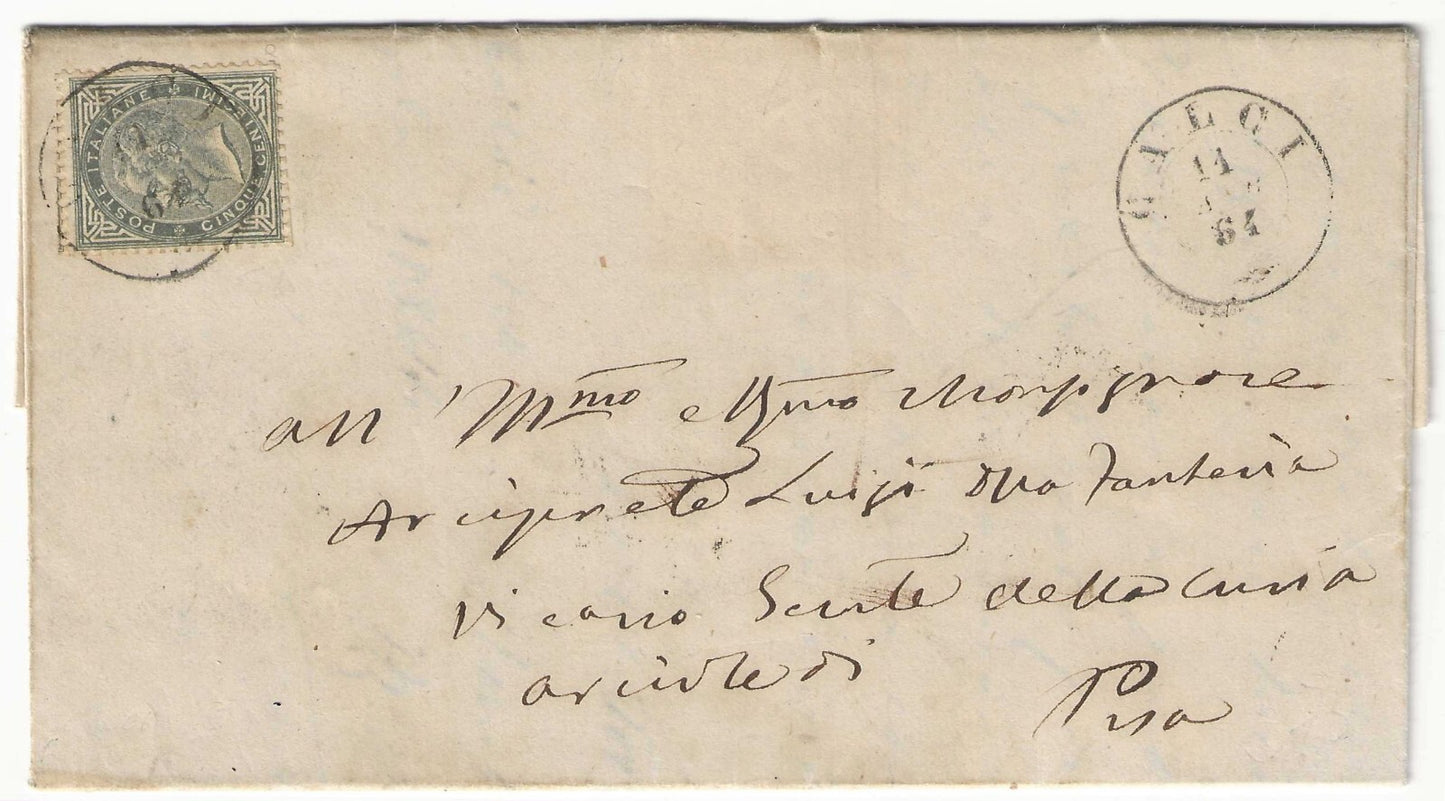 POSTE ITALIANE
CINQUE CENTESIMI
64
CALCI
11
64
All' Ill.mo e R.mo Monsignore
Arciprete Luigi Della Fanteria
Vicario Genle della Curia
arcivle di
Pisa